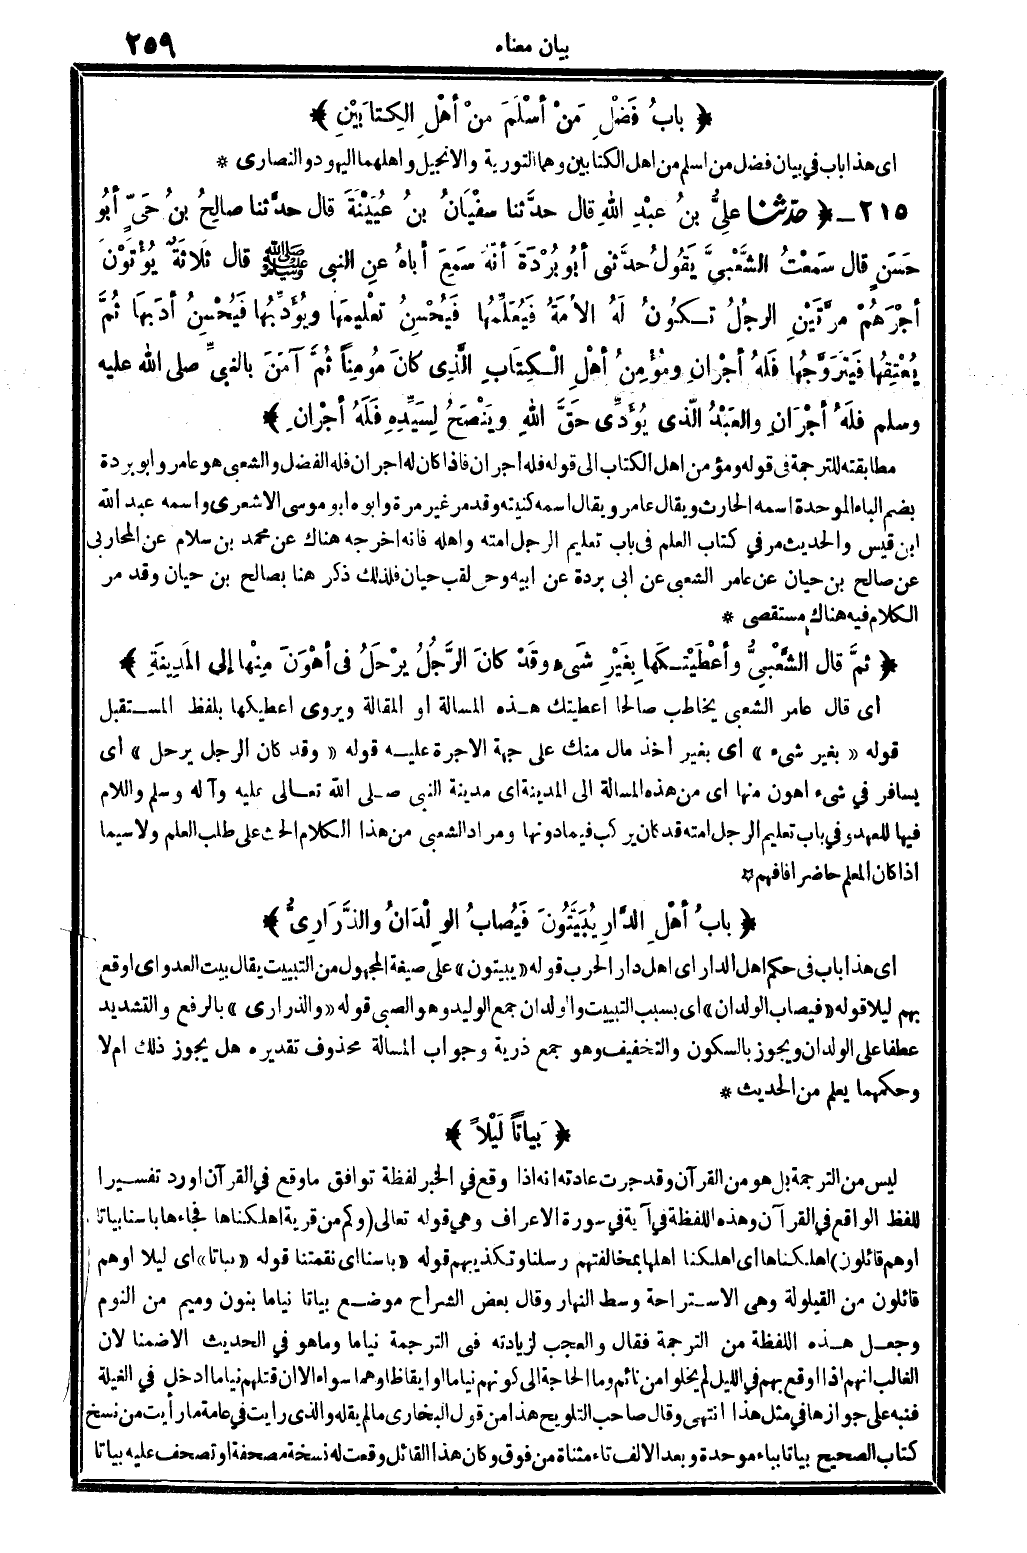 بيان معناه ٢٥٩
﴿ بابُ فَضْلِ مَنْ أسْلَمَ مِنْ أهْلِ الكِتابَيْنِ ﴾
اى هذا باب في بيان فضل من اسلم من اهل الكتابين وهما التورية والانجيل واهلهما اليهود والنصارى *
٢١٥ـ ﴿ حدّثنا علِيُّ بنُ عبْدِ اللهِ قال حدَّثنا سفْيانُ بنُ عُيَيْنَةَ قال حدَّثنا صالِحُ بنُ حَيٍّ أبُو
حَسَنٍ قال سَمِعْتُ الشَّعْبِيَّ يَقُولُ حدثنى أبُو بُرْدَةَ أنَّهُ سَمِعَ أباهُ عنِ النبى ﷺ قال ثَلاثَةٌ يُؤْتَوْنَ
أجْرَهُمْ مرَّتَيْنِ الرجلُ تَكُونُ لَهُ الأمَةُ فَيُعَلِّمُها فَيُحْسِنُ تعْلِيمَها ويُؤَدِّبُها فَيُحْسِنُ أدَبَها ثُمَّ
يُعْتِقُها فَيَتَزَوَّجُها فَلَهُ أجْرَانِ ومُؤْمِنُ أهْلِ الْكِتَابِ الَّذِى كانَ مُومِناً ثُمَّ آمَنَ بالنبىِّ صلى الله عليه
وسلم فلَهُ أجْرَانِ والعَبْدُ الَّذى يُؤَدِّى حَقَّ اللهِ ويَنْصَحُ لِسَيِّدِهِ فَلَهُ أجْرانِ ﴾
مطابقته للترجمة فى قوله ومؤمن اهل الكتاب الى قوله فله اجران فاذا كان له اجران فله الفضل والشعبى هو عامر وابو بردة
بضم الباء الموحدة اسمه الحارث ويقال عامر ويقال اسمه كنيته وقد مر غير مرة وابوه ابو موسى الاشعرى واسمه عبد الله
ابن قيس والحديث مر في كتاب العلم فى باب تعليم الرجل امته واهله فانه اخرجه هناك عن محمد بن سلام عن المحاربى
عن صالح بن حيان عن عامر الشعبى عن ابى بردة عن ابيه وحى لقب حيان فلذلك ذكر هنا بصالح بن حيان وقد مر
الكلام فيه هناك مستقصى *
﴿ ثمَّ قال الشَّعْبِيُّ وأعْطَيْتُكَها بِغَيْرِ شَىْءٍ وقَدْ كانَ الرَّجُلُ يرْحَلُ فى أهْوَنَ مِنْها إلى المَدِينَةِ ﴾
اى قال عامر الشعبى يخاطب صالحا اعطيتك هذه المسالة او المقالة ويروى اعطيكها بلفظ المستقبل
قوله « بغير شىء » اى بغير أخذ مال منك على جهة الاجرة عليه قوله « وقد كان الرجل يرحل » أى
يسافر في شىء اهون منها اى من هذه المسالة الى المدينة اى مدينة النبى صلى الله تعالى عليه وآله وسلم واللام
فيها للعهد وفي باب تعليم الرجل امته قد كان يركب فيما دونها ومراد الشعبى من هذا الكلام الحث على طلب العلم ولاسيما
اذا كان المعلم حاضرا فافهم *
﴿ بابُ أهْلِ الدَّارِ يُبَيَّتُونَ فَيُصابُ الوِلْدَانُ والذَّرَارِىُّ ﴾
اى هذا باب فى حكم اهل الدار اى اهل دار الحرب قوله « يبيتون » على صيغة المجهول من التبييت يقال بيت العدو اى اوقع
بهم ليلا قوله « فيصاب الولدان » اى بسبب التبييت والولدان جمع الوليد وهو الصبى قوله « والذرارى » بالرفع والتشديد
عطفا على الولدان ويجوز بالسكون والتخفيف وهو جمع ذرية وجواب المسالة محذوف تقديره هل يجوز ذلك ام لا
وحكمهما يعلم من الحديث *
﴿ بَياتاً لَيْلاً ﴾
ليس من الترجمة بل هو من القرآن وقد جرت عادته انه اذا وقع في الخبر لفظة توافق ما وقع في القرآن اورد تفسيرا
للفظ الواقع في القرآن وهذه اللفظة في آية في سورة الاعراف وهي قوله تعالى (وكم من قرية اهلكناها فجاءها باسنا بياتا
او هم قائلون) اهلكناها اى اهلكنا اهلها بمخالفتهم رسلنا وتكذيبهم قوله « باسنا اى نقمتنا قوله « بياتا » اى ليلا او هم
قائلون من القيلولة وهى الاستراحة وسط النهار وقال بعض الشراح موضع بياتا نياما بنون وميم من النوم
وجعل هذه اللفظة من الترجمة فقال والعجب لزيادته فى الترجمة نياما وما هو في الحديث الا ضمنا لان
الغالب انهم اذا اوقع بهم في الليل لم يخلوا من نائم وما الحاجة الى كونهم نياما او ايقاظا وهما سواء الا ان قتلهم نياما ادخل في الغيلة
فنبه على جوازها في مثل هذا انتهى وقال صاحب التلويح هذا من قول البخارى ما لم يقله والذى رايت في عامة ما رأيت من نسخ
كتاب الصحيح بياتا بباء موحدة وبعد الالف تاء مثناة من فوق وكان هذا القائل وقعت له نسخة مصحفة او تصحف عليه بياتا